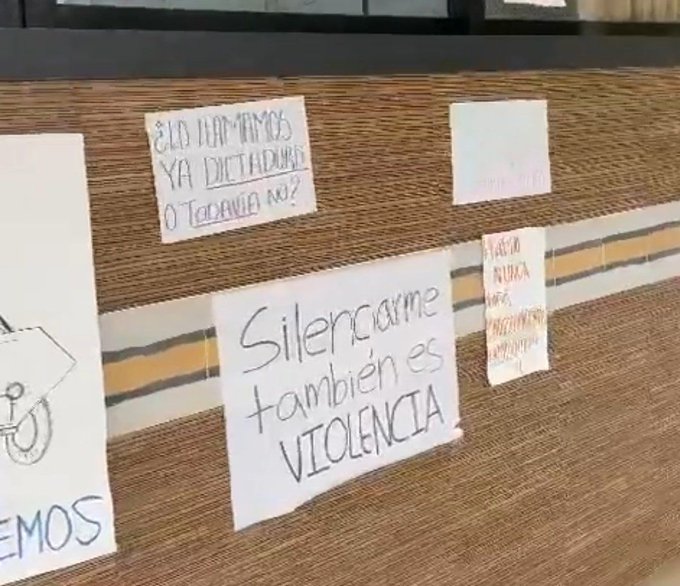 ¿LO LLAMAMOS
YA DICTADURA
O TODAVÍA NO?
Silenciarme
también es
VIOLENCIA
EMOS
NUNCA